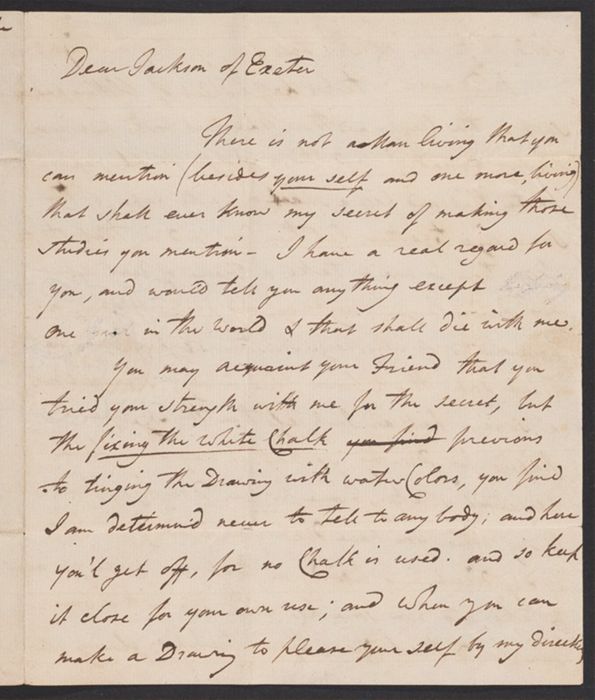 Dear Jackson of Exeter
There is not a Man living that you
can mention (besides your self and one more, living)
that shall ever know my secret of making those
studies you mention – I have a real regard for
you, and would tell you anything except
one in the world & that shall die with me.
You may acquaint your Friend that you
tried your strength with me for the secret, but
the fixing the white Chalk you find previous
to tinging the Drawing with water Colors, you find
I am determin'd never to tell to any body; and here
you'l get off, for no Chalk is used. and so keep
it close for your own use; and when you can
make a Drawing to please your self by my direction